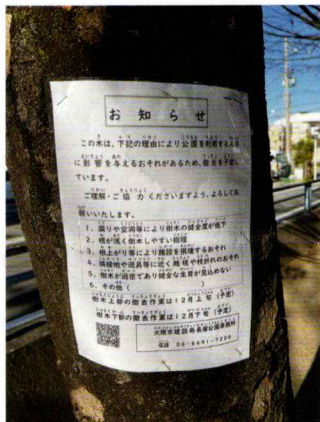 お知らせ
この木は、下記の理由により公園を利用する人等
に影響を与えるおそれがあるため、撤去を予定し
ています。
ご理解・ご協力くださいますよう、よろしくお
願いいたします。
1. 腐りや空洞等により樹木の健全度が低下
2. 根が浅く倒木しやすい樹種
3. 根上がり等により施設を損壊するおそれ
4. 隣接地や道路等に近く越境や枝折れのおそれ
5. 樹木が過密であり健全な生育が見込めない
6. その他（　　　）
樹木上部の撤去作業は12月上旬（予定）
樹木下部の撤去作業は12月下旬（予定）
大阪市建設局長居公園事務所
電話 06-6691-7200